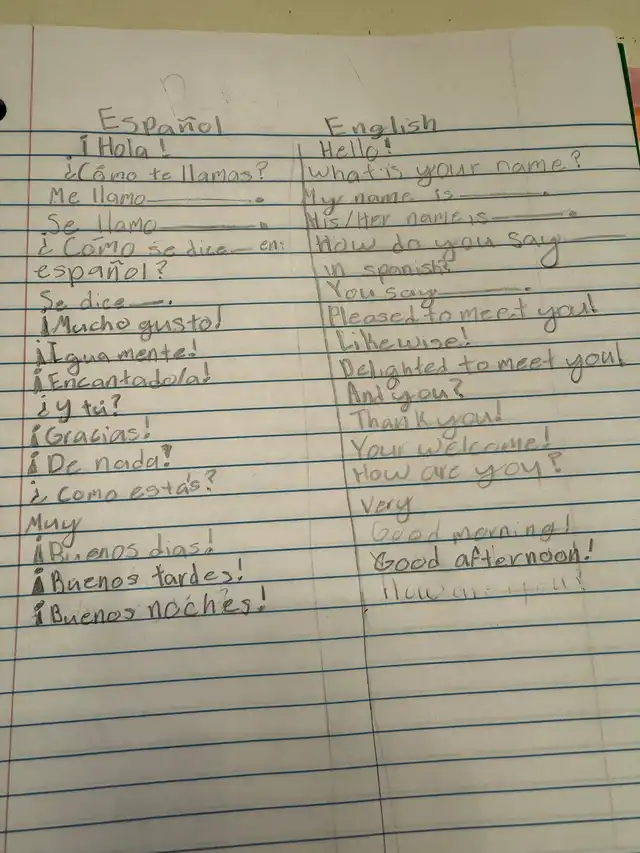 Español English
¡Hola! Hello!
¿Cómo te llamas? What is your name?
Me llamo ______. My name is ______.
Se llamo ______. His/Her name is ______.
¿Como se dice ___ en: How do you say ___
español? in spanish?
Se dice ___. You say ______.
¡Mucho gusto! Pleased to meet you!
¡Iguamente! Likewise!
¡Encantadola! Delighted to meet you!
¿Y tú? And you?
¡Gracias! Thank you!
¡De nada! Your welcome!
¿Como estás? How are you?
Muy Very
¡Buenos dias! Good morning!
¡Buenos tardes! Good afternoon!
¡Buenos noches!